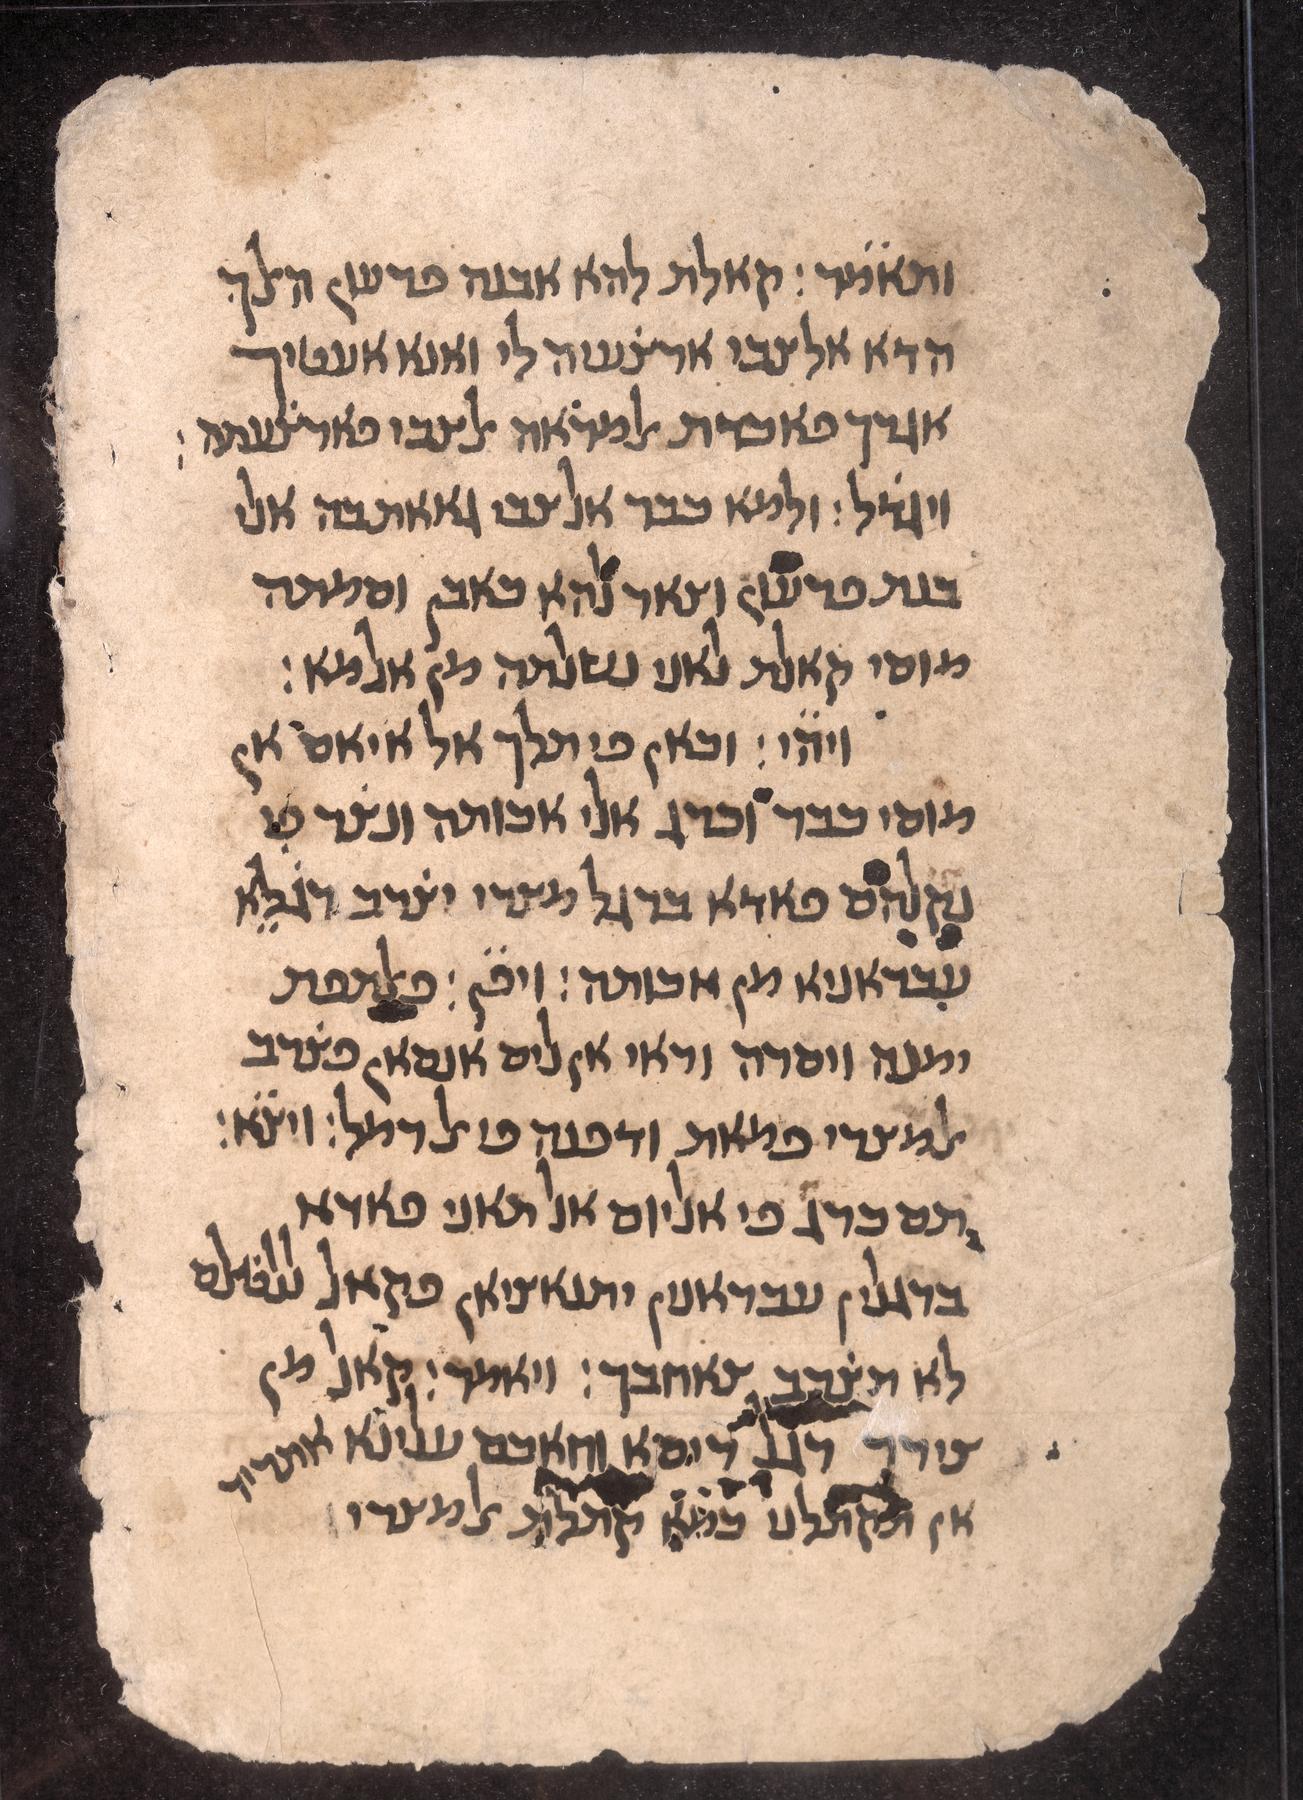 ותאמר: קאלת להא אבנה פרעון הילך
הדא אלצבי ארצעיה לי ואנא אעטיך
אגרך פאכדת למראה לצבי פארצעתה:
ויגדל: ולמא כבר אלצבי גאאתבה אלי
בנת פרעון וצאר להא כאבן וסמתה
מוסי קאלת לאני נשלתה מן אלמא:
ויהי: וכאן פי תלך אל איאם אן
מוסי כבר וכרג אלי אכותה ונצר פי
תקלהם פאדא ברגל מצרי יצרב רגלא
עבראניא מן אכותה: ויפן: פלתפת
ימנה ויסרה וראי אן ליס אנסאן פצרב
למצרי פמאת ודפנה פי לרמל: ויצא:
תם כרג פי אליום אל תאני פאדא
ברגלין עבראנין יתנאציאן פקאל
לא תצרב צאחבך: ויאמר: קאל מן
צירך רגל ריסא וחאכם עלינא אתריד
אן תקתלני כמא קתלת למצרי